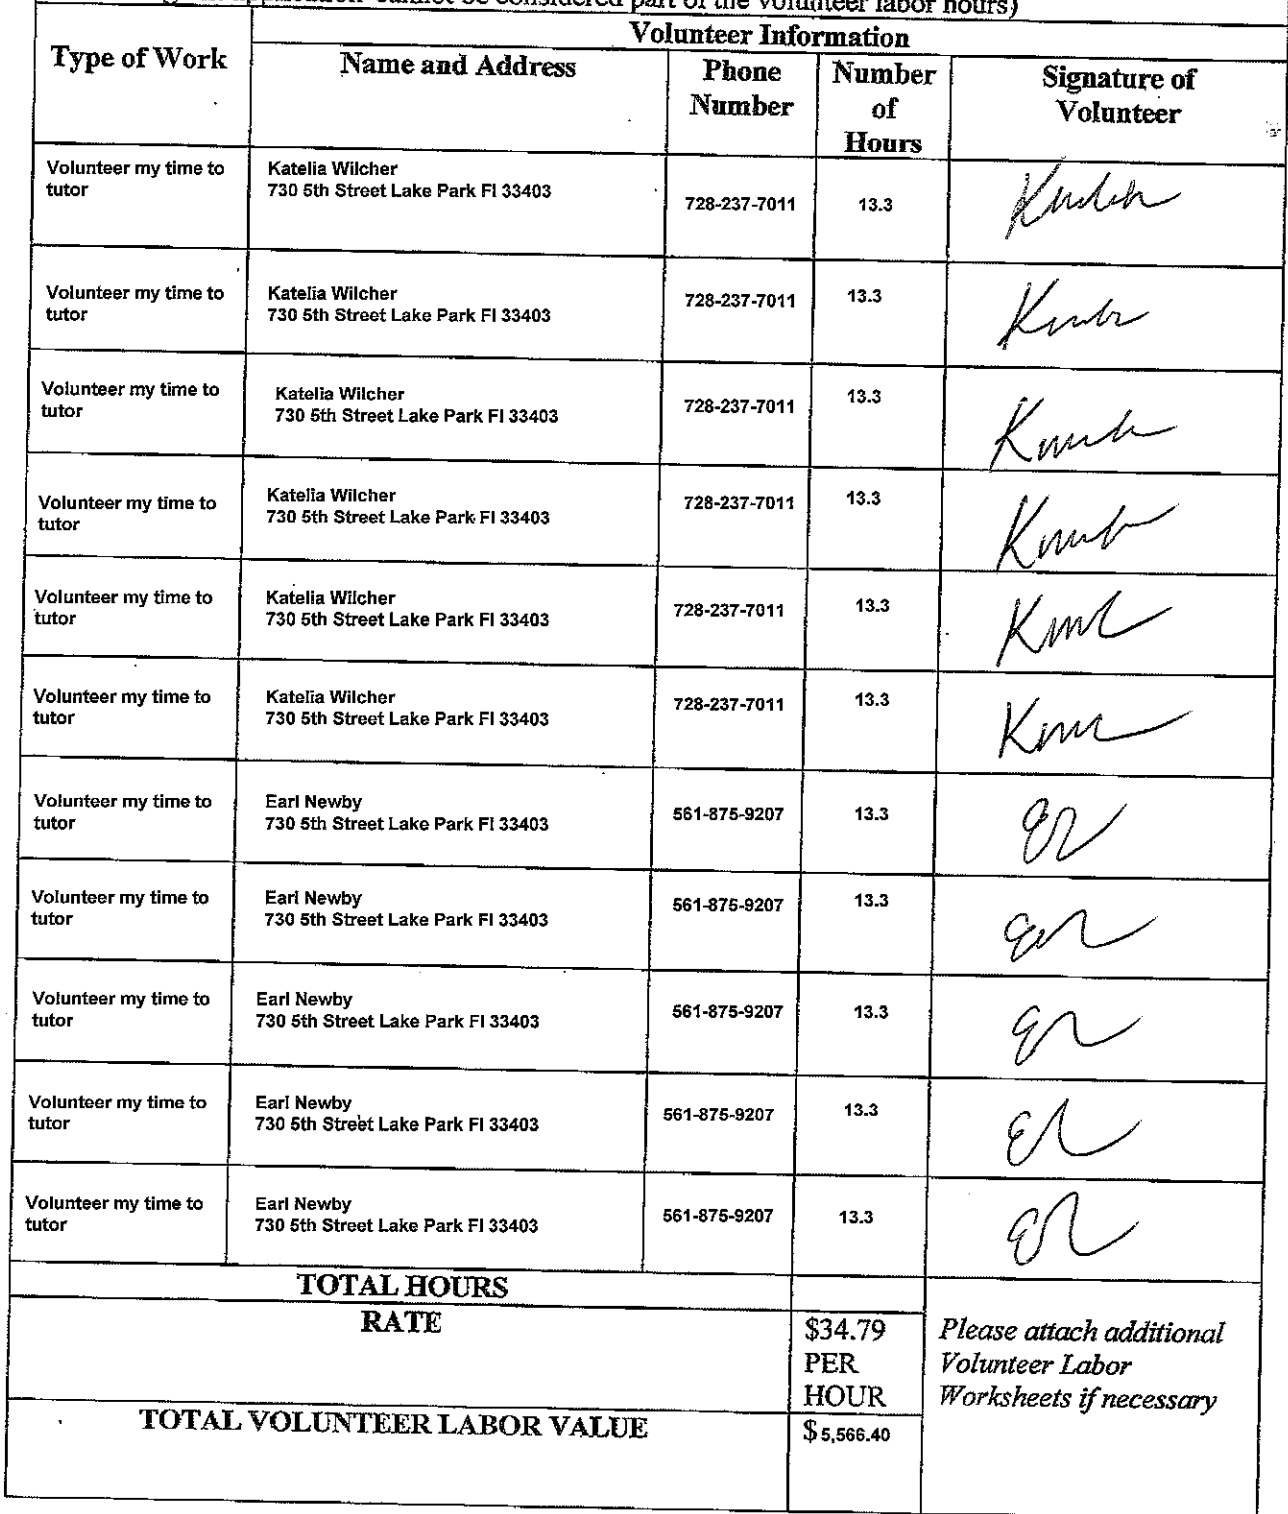 application cannot be considered part of the volunteer labor hours)
Volunteer Information
Type of Work
Name and Address
Phone Number
Number of Hours
Signature of Volunteer
Volunteer my time to
tutor
Katelia Wilcher
730 5th Street Lake Park Fl 33403
728-237-7011
13.3
Volunteer my time to
tutor
Katelia Wilcher
730 5th Street Lake Park Fl 33403
728-237-7011
13.3
Volunteer my time to
tutor
Katelia Wilcher
730 5th Street Lake Park Fl 33403
728-237-7011
13.3
Volunteer my time to
tutor
Katelia Wilcher
730 5th Street Lake Park Fl 33403
728-237-7011
13.3
Volunteer my time to
tutor
Katelia Wilcher
730 5th Street Lake Park Fl 33403
728-237-7011
13.3
Volunteer my time to
tutor
Katelia Wilcher
730 5th Street Lake Park Fl 33403
728-237-7011
13.3
Volunteer my time to
tutor
Earl Newby
730 5th Street Lake Park Fl 33403
561-875-9207
13.3
Volunteer my time to
tutor
Earl Newby
730 5th Street Lake Park Fl 33403
561-875-9207
13.3
Volunteer my time to
tutor
Earl Newby
730 5th Street Lake Park Fl 33403
561-875-9207
13.3
Volunteer my time to
tutor
Earl Newby
730 5th Street Lake Park Fl 33403
561-875-9207
13.3
Volunteer my time to
tutor
Earl Newby
730 5th Street Lake Park Fl 33403
561-875-9207
13.3
TOTAL HOURS
RATE
$34.79
PER
HOUR
Please attach additional
Volunteer Labor
Worksheets if necessary
TOTAL VOLUNTEER LABOR VALUE
$ 5,566.40